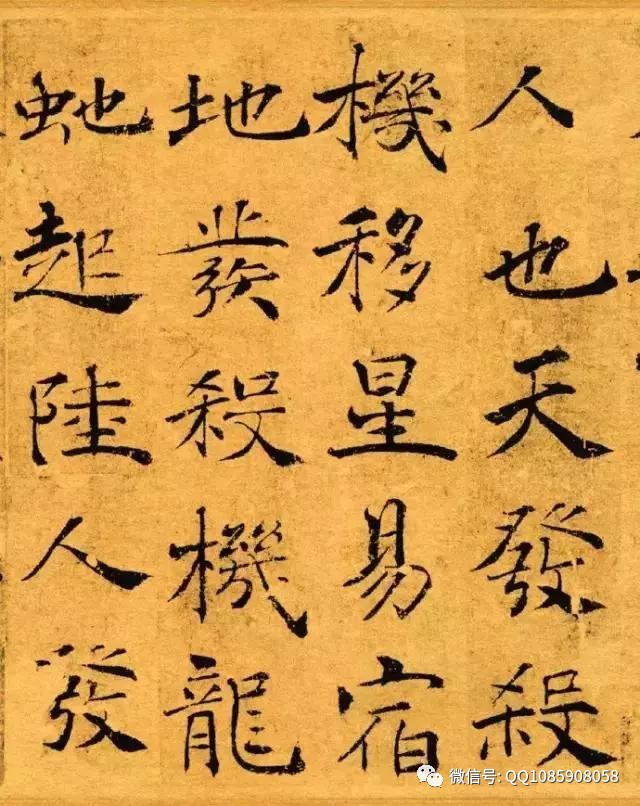 人也天發殺
機移星易宿
地發殺機龍
虵起陸人發
微信号: QQ1085908058